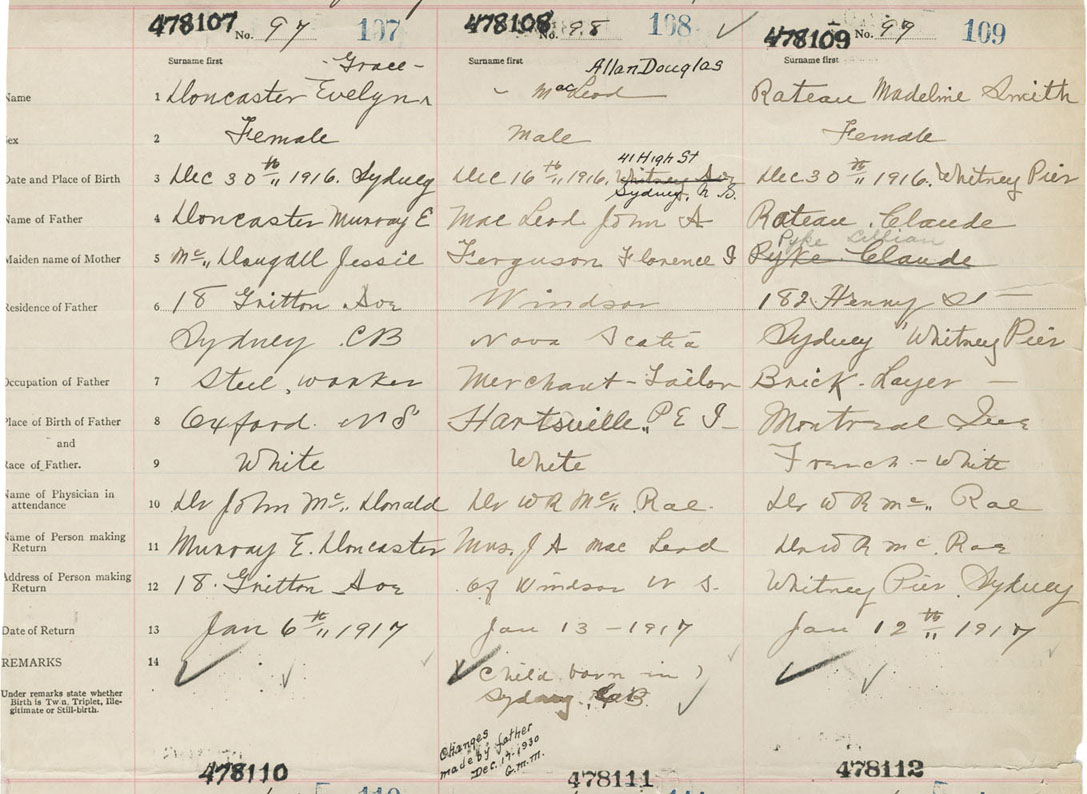 478107 No. 97 107
478108 No. 98 108
478109 No. 99 109
Surname first Grace
Surname first Allan Douglas
Surname first
Name 1 Doncaster Evelyn MacLeod Rateau Madeline Smith
Sex 2 Female Male Female
41 High St
Date and Place of Birth 3 Dec 30th 1916. Sydney Dec 16th 1916. Whitney Ave Dec 30th 1916. Whitney Pier
Sydney, N.S.
Name of Father 4 Doncaster Murray E Mac Leod John A Rateau Claude
Pyke Lillian
Maiden name of Mother 5 Mc Dougall Jessie Ferguson Florence I Pyke Claude
Residence of Father 6 18 Gritton Ave Windsor 182 Henry St
Sydney CB Nova Scotia Sydney Whitney Pier
Occupation of Father 7 Steel worker Merchant-Tailor Brick-Layer
Place of Birth of Father 8 Oxford N S Hartsville P E I Montreal Que
and
Race of Father. 9 White White French-White
Name of Physician in
attendance 10 Dr John Mc Donald Dr W R Mc Rae. Dr W R Mc Rae
Name of Person making
Return 11 Murray E. Doncaster Mrs. J A Mac Leod Dr W R Mc Rae
Address of Person making
Return 12 18. Gritton Ave of Windsor N S. Whitney Pier Sydney
Date of Return 13 Jan 6th 1917 Jan 13-1917 Jan 12th 1917
REMARKS 14 Child born in
Sydney, CB.
Under remarks state whether
Birth is Twin, Triplet, Ille-
gitimate or Still-birth.
Changes
made by father
Dec. 17-1930
G.M.M.
478110 478111 478112